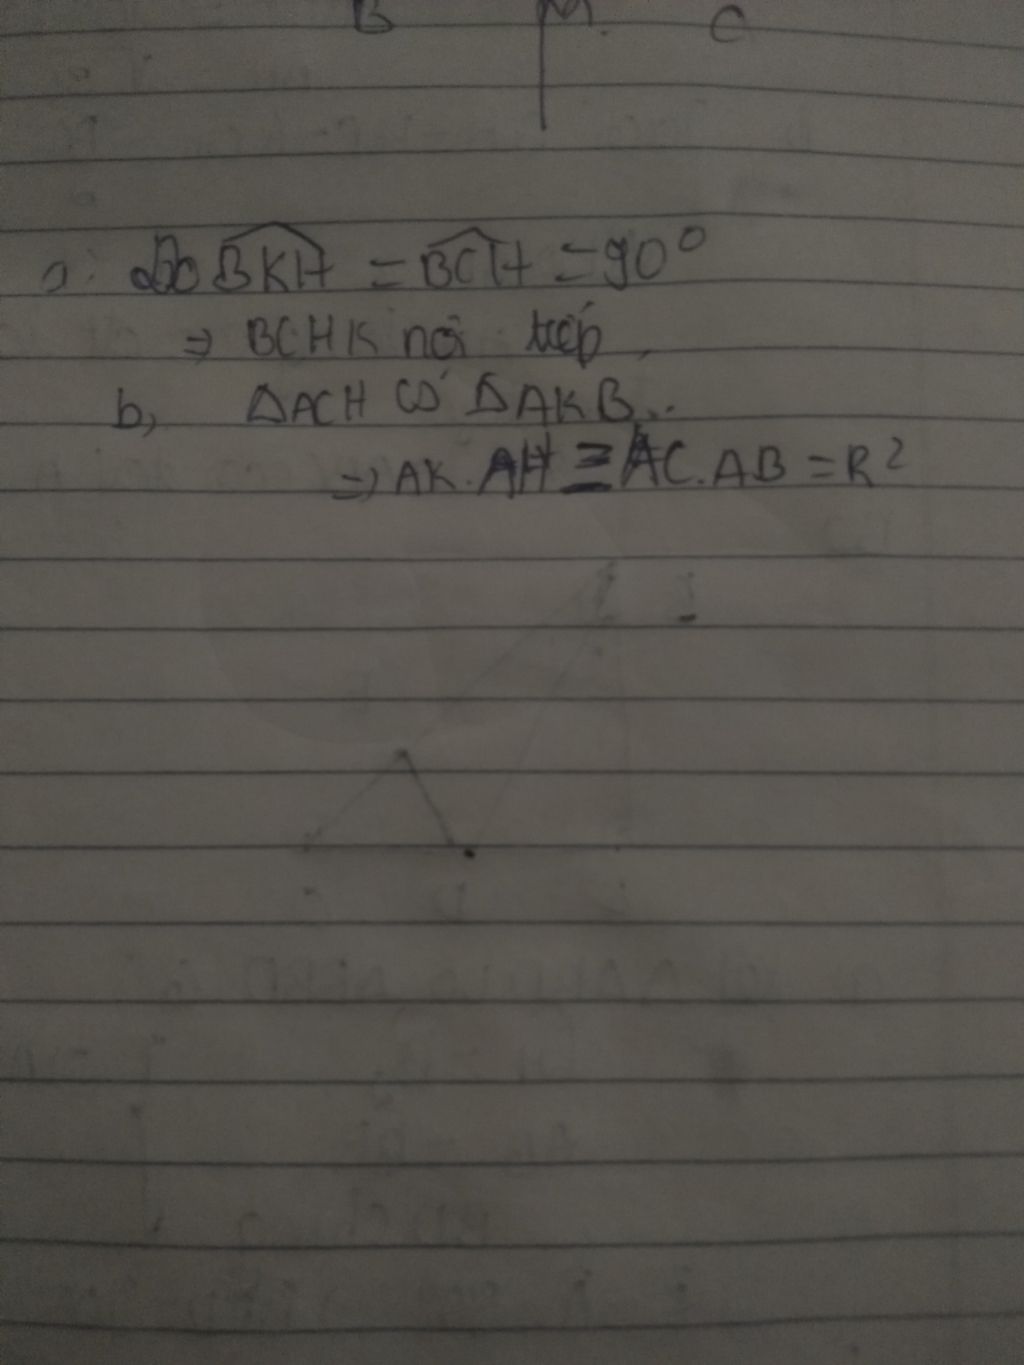 B M C
a. Do BKH = BCH = 90°
⇒ BCHK nội tiếp
b, ΔACH ∽ ΔAKB
⇒ AK.AH = AC.AB = R²